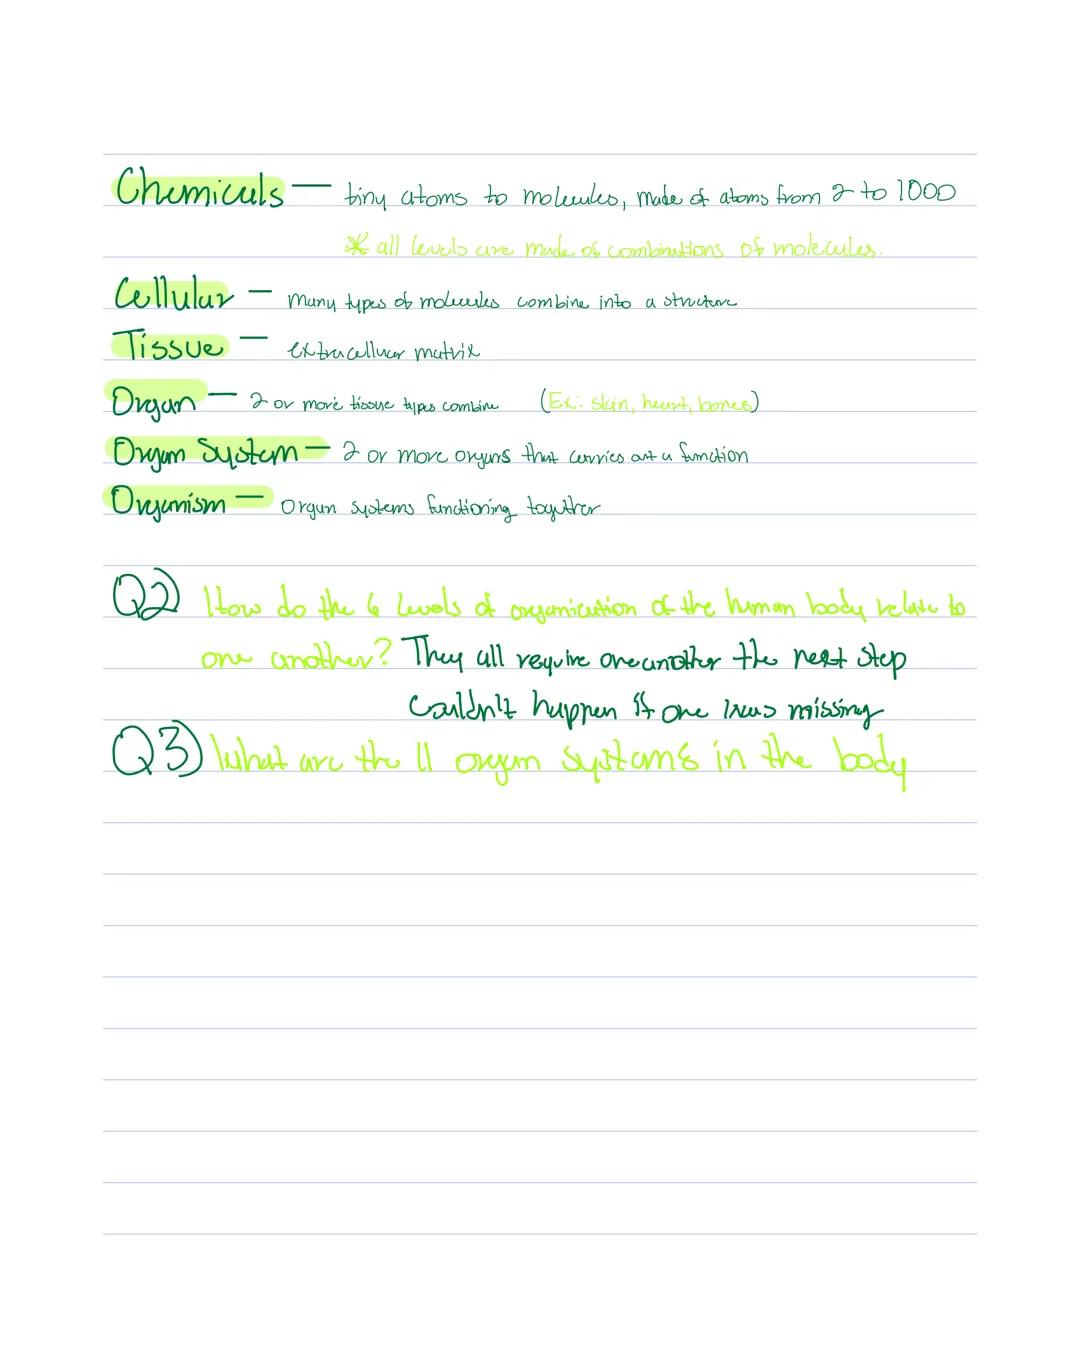 Chemicals — tiny atoms to molecules, made of atoms from 2 to 1000
* all levels are made of combinations of molecules.
Cellular — many types of molecules combine into a structure
Tissue — extracelluar matrix
Organ — 2 or more tissue types combine (Ex: skin, heart, bones)
Organ System — 2 or more organs that carries out a function
Organism — Organ systems functioning together
Q2) How do the 6 levels of organication of the human body relate to
one another? They all require one another the next step
Couldn't happen if one was missing
Q3) What are the 11 organ systems in the body